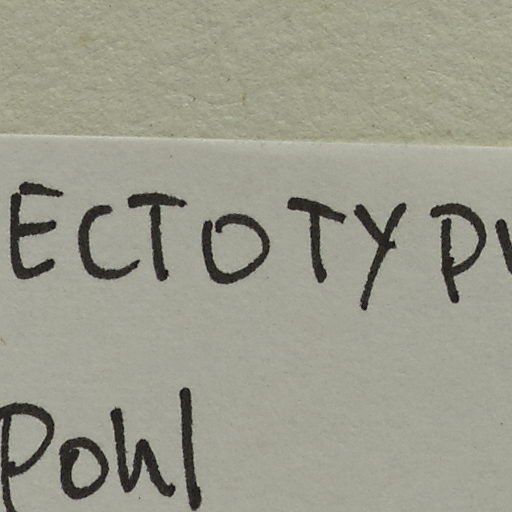 ECTOTYPU
Pohl